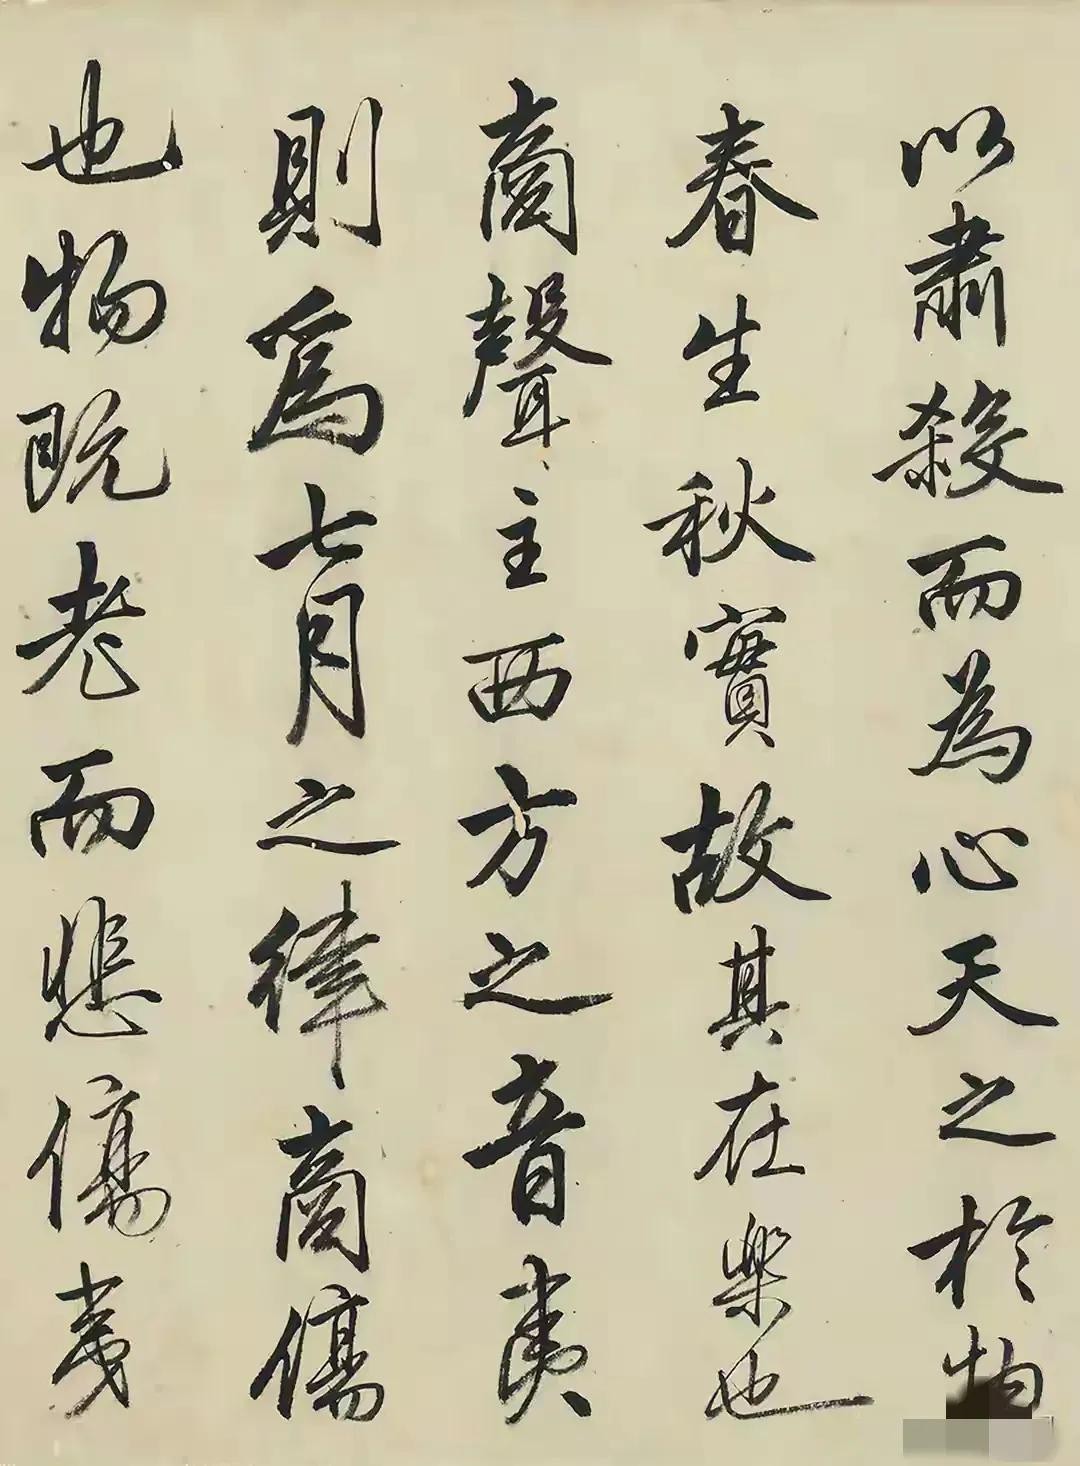 以肅殺而為心天之於物
春生秋實故其在樂也
商聲主西方之音夷
則爲七月之律商傷
也物既老而悲傷夷